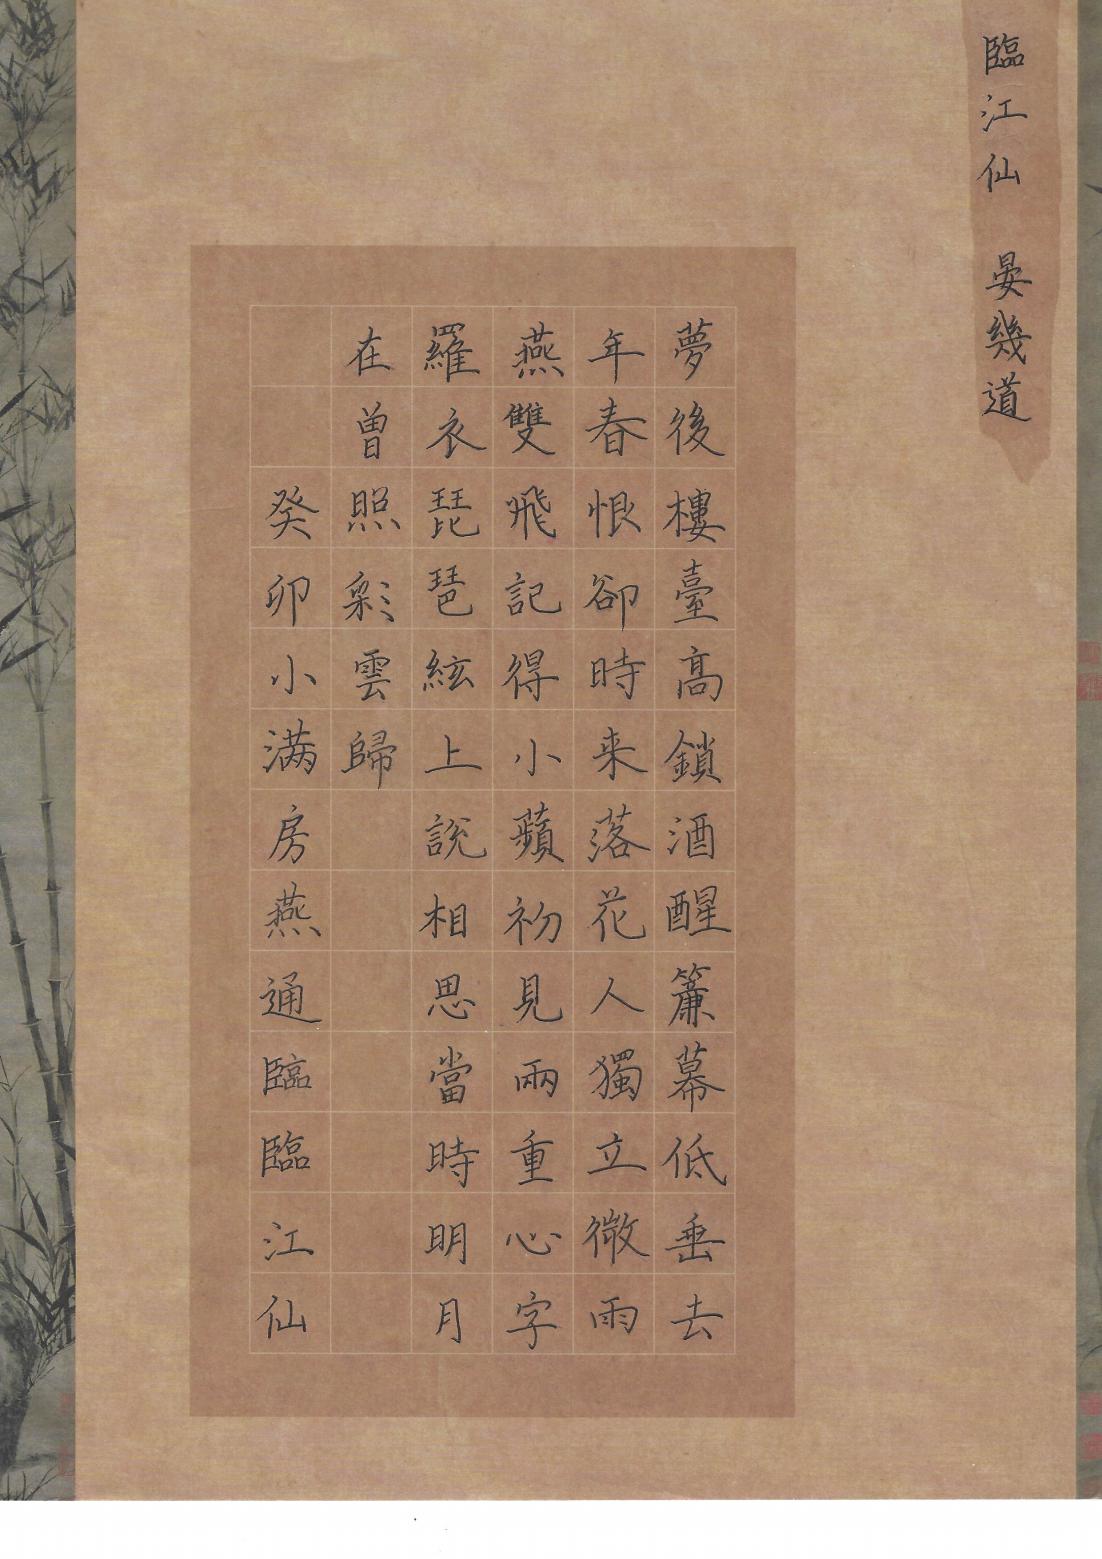 臨江仙 晏幾道
夢後樓臺高鎖酒醒簾幕低垂去
年春恨卻時来落花人獨立微雨
燕雙飛記得小蘋初見兩重心字
羅衣琵琶絃上說相思當時明月
在曾照彩雲歸
癸卯小满房燕通臨臨江仙